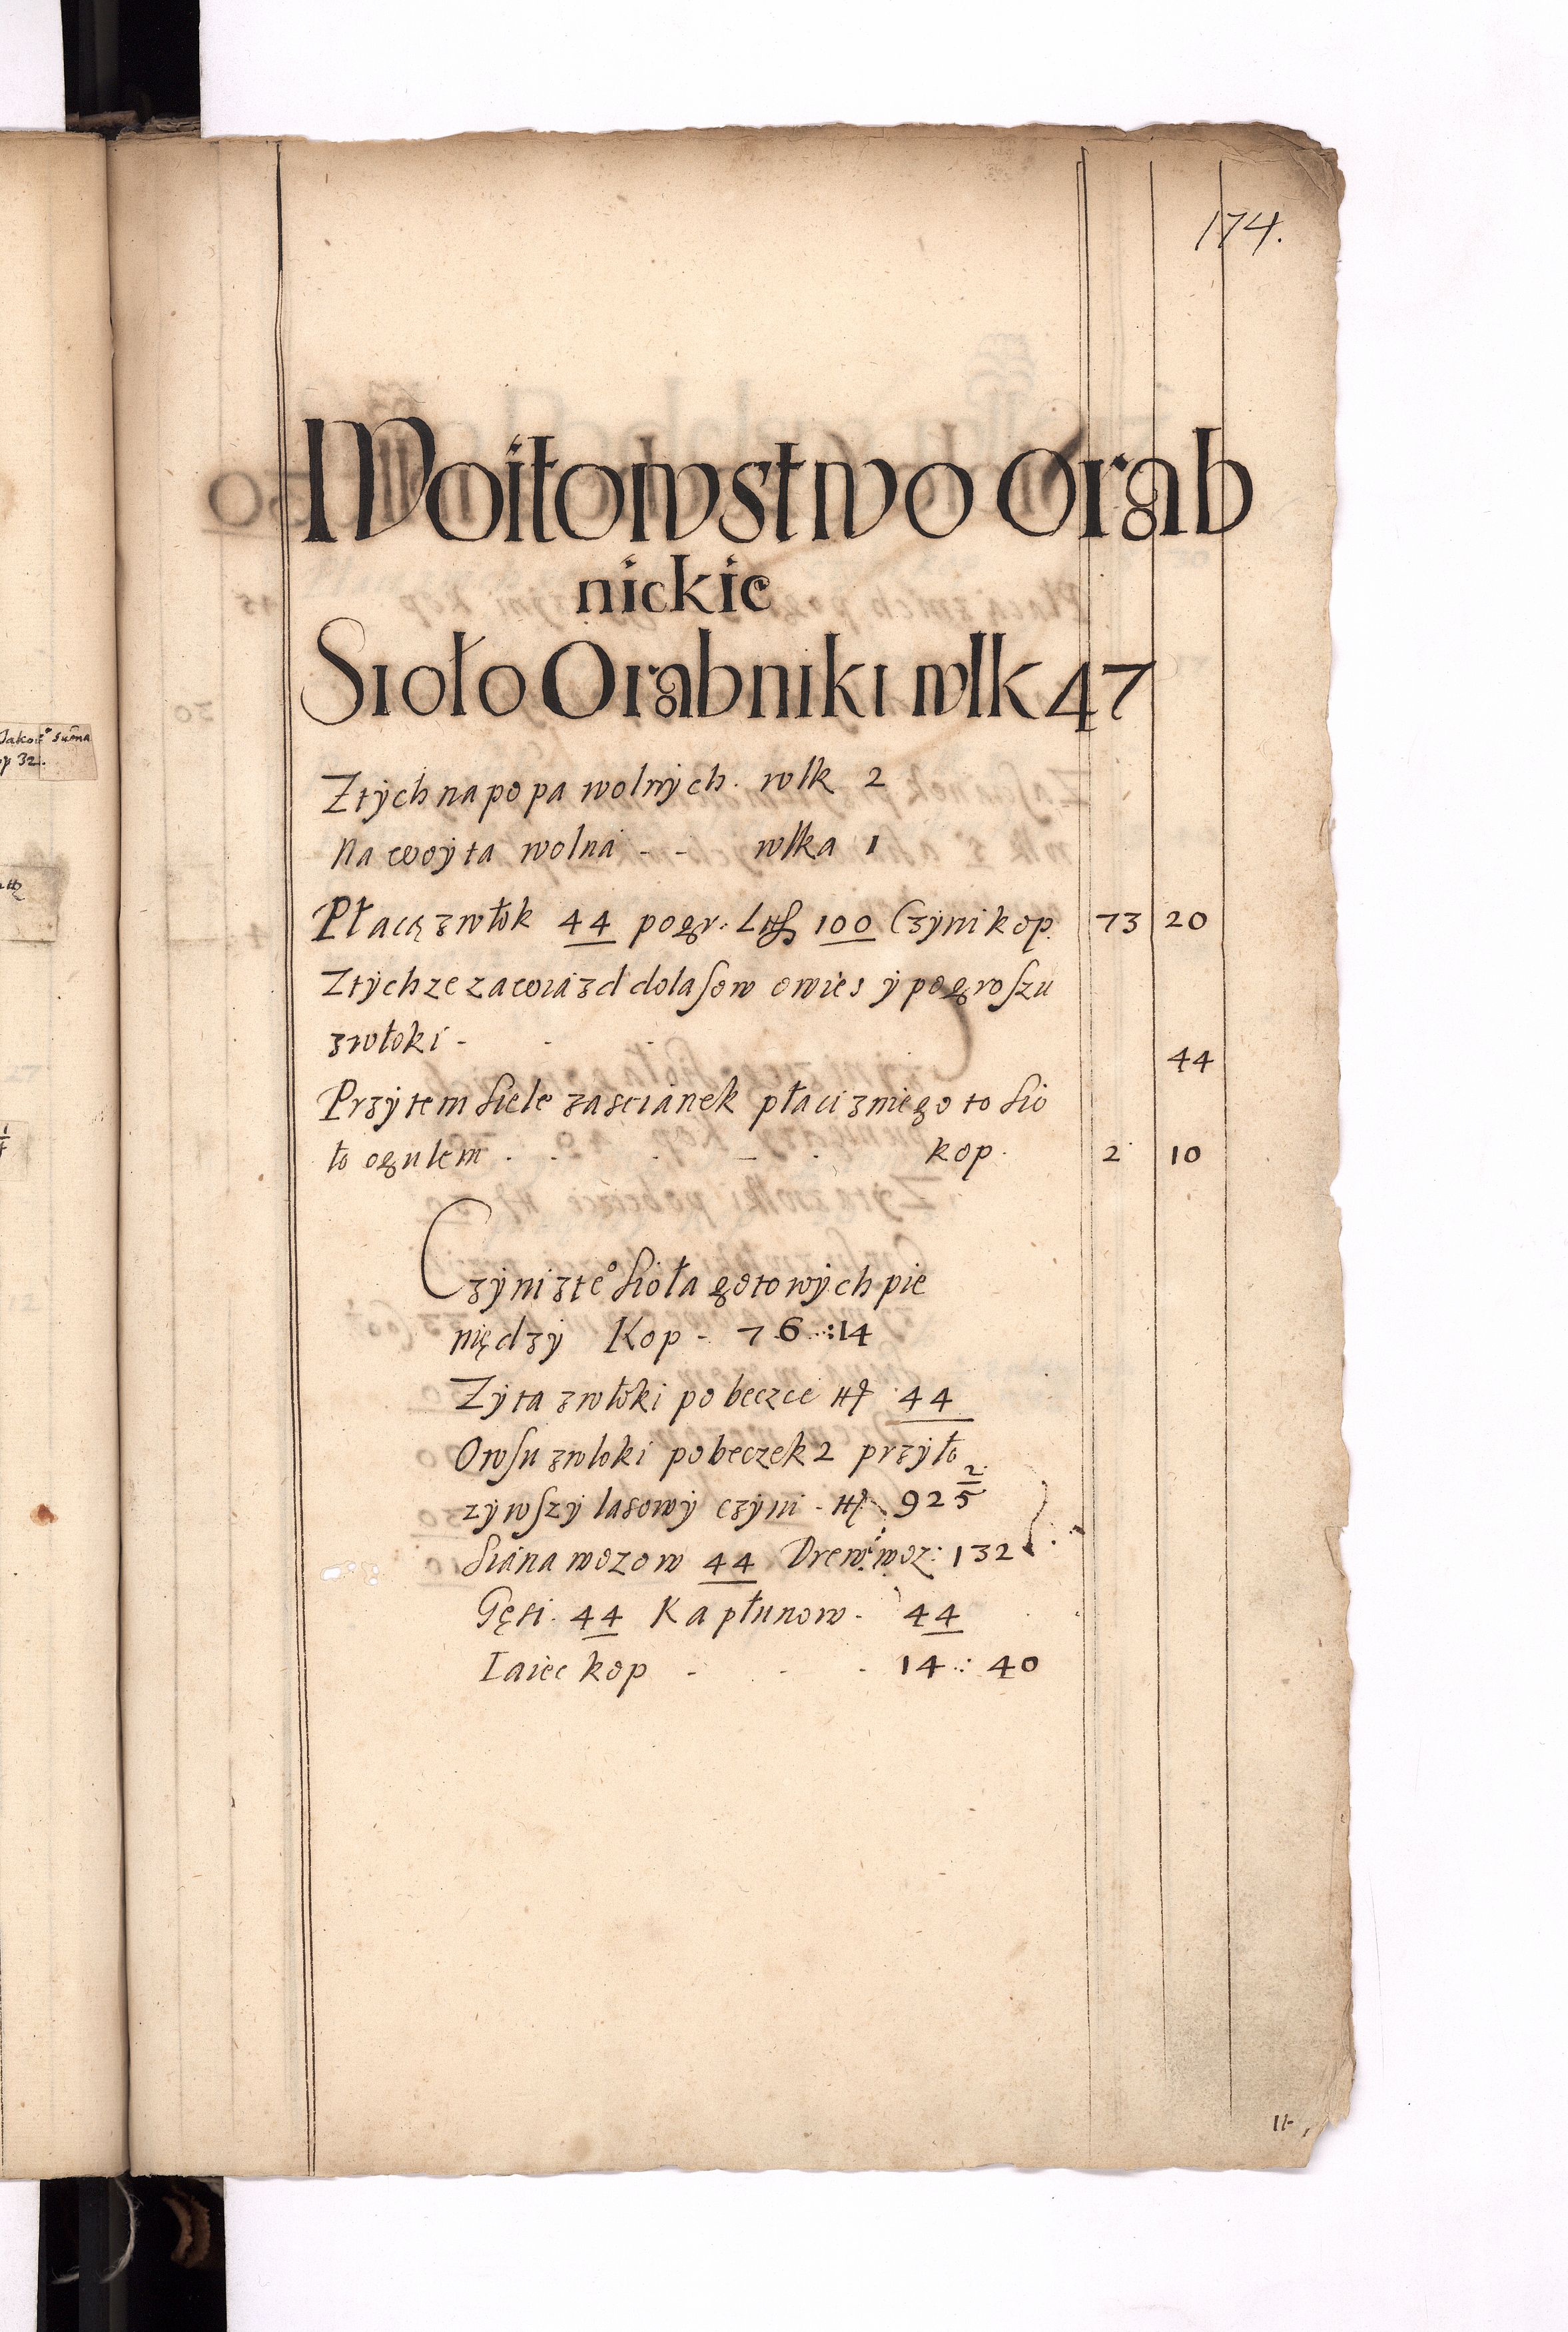 174.
Woitowstwo Orab
nickie
Sioło Orabniki wlk 47
Z tych na popa wolnych. wlk 2
Na woyta wolna - - wlka 1
Płacą z włok 44 po gr. Lit. 100 Czyni kop. 73 20
Z tychze za wiazd do lasow owies y po groszu
z włoki - - - 44
Przy tem siele zascianek płaci z niego to sio
ło ogulem . . . kop. 2 10
Czyni z te° sioła gotowych pie
niędzy Kop - 76 .: 14
Zyta z włoki po beczce 44
Owsu z wloki po beczek 2 przyło
zywszy lasowy czyni - 92 2/5
Siana wozow 44 Drew: woz: 132
Gęsi. 44 Kapłunow - 44
Iaiec kop - - - 14 .: 40
Jako te° Suma
32.